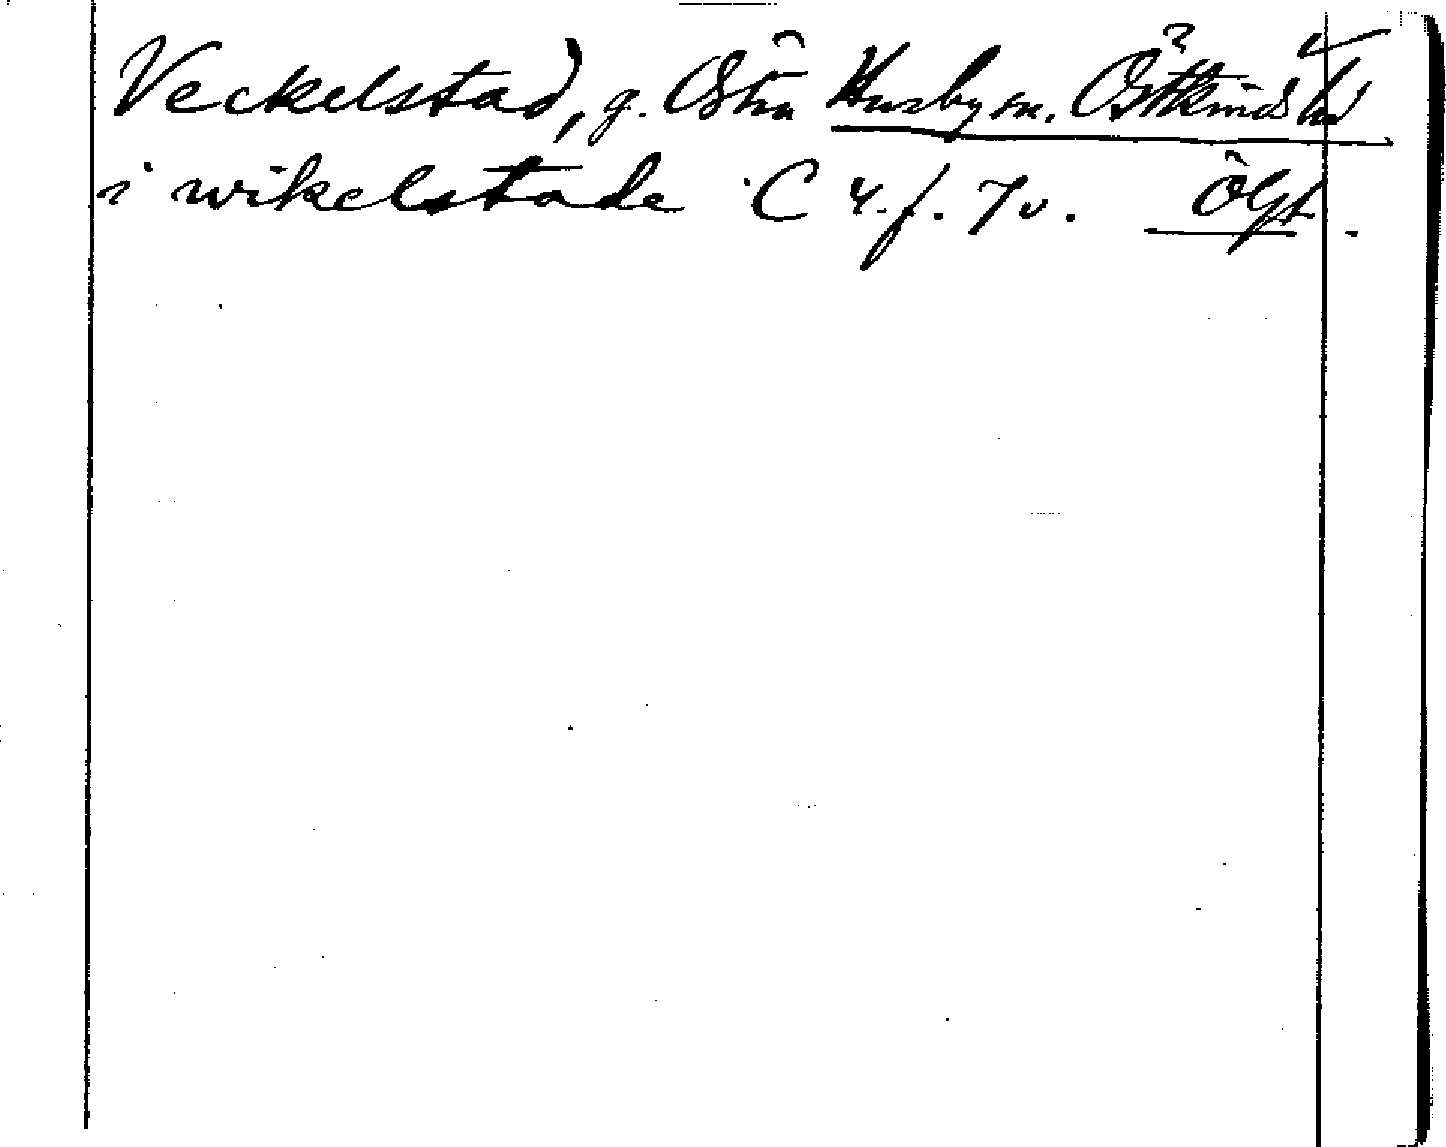 Veckelstad, g. Östra Husby sn. Östkinds hd
i wikelstade C 4. f. 7 v. Ögt.